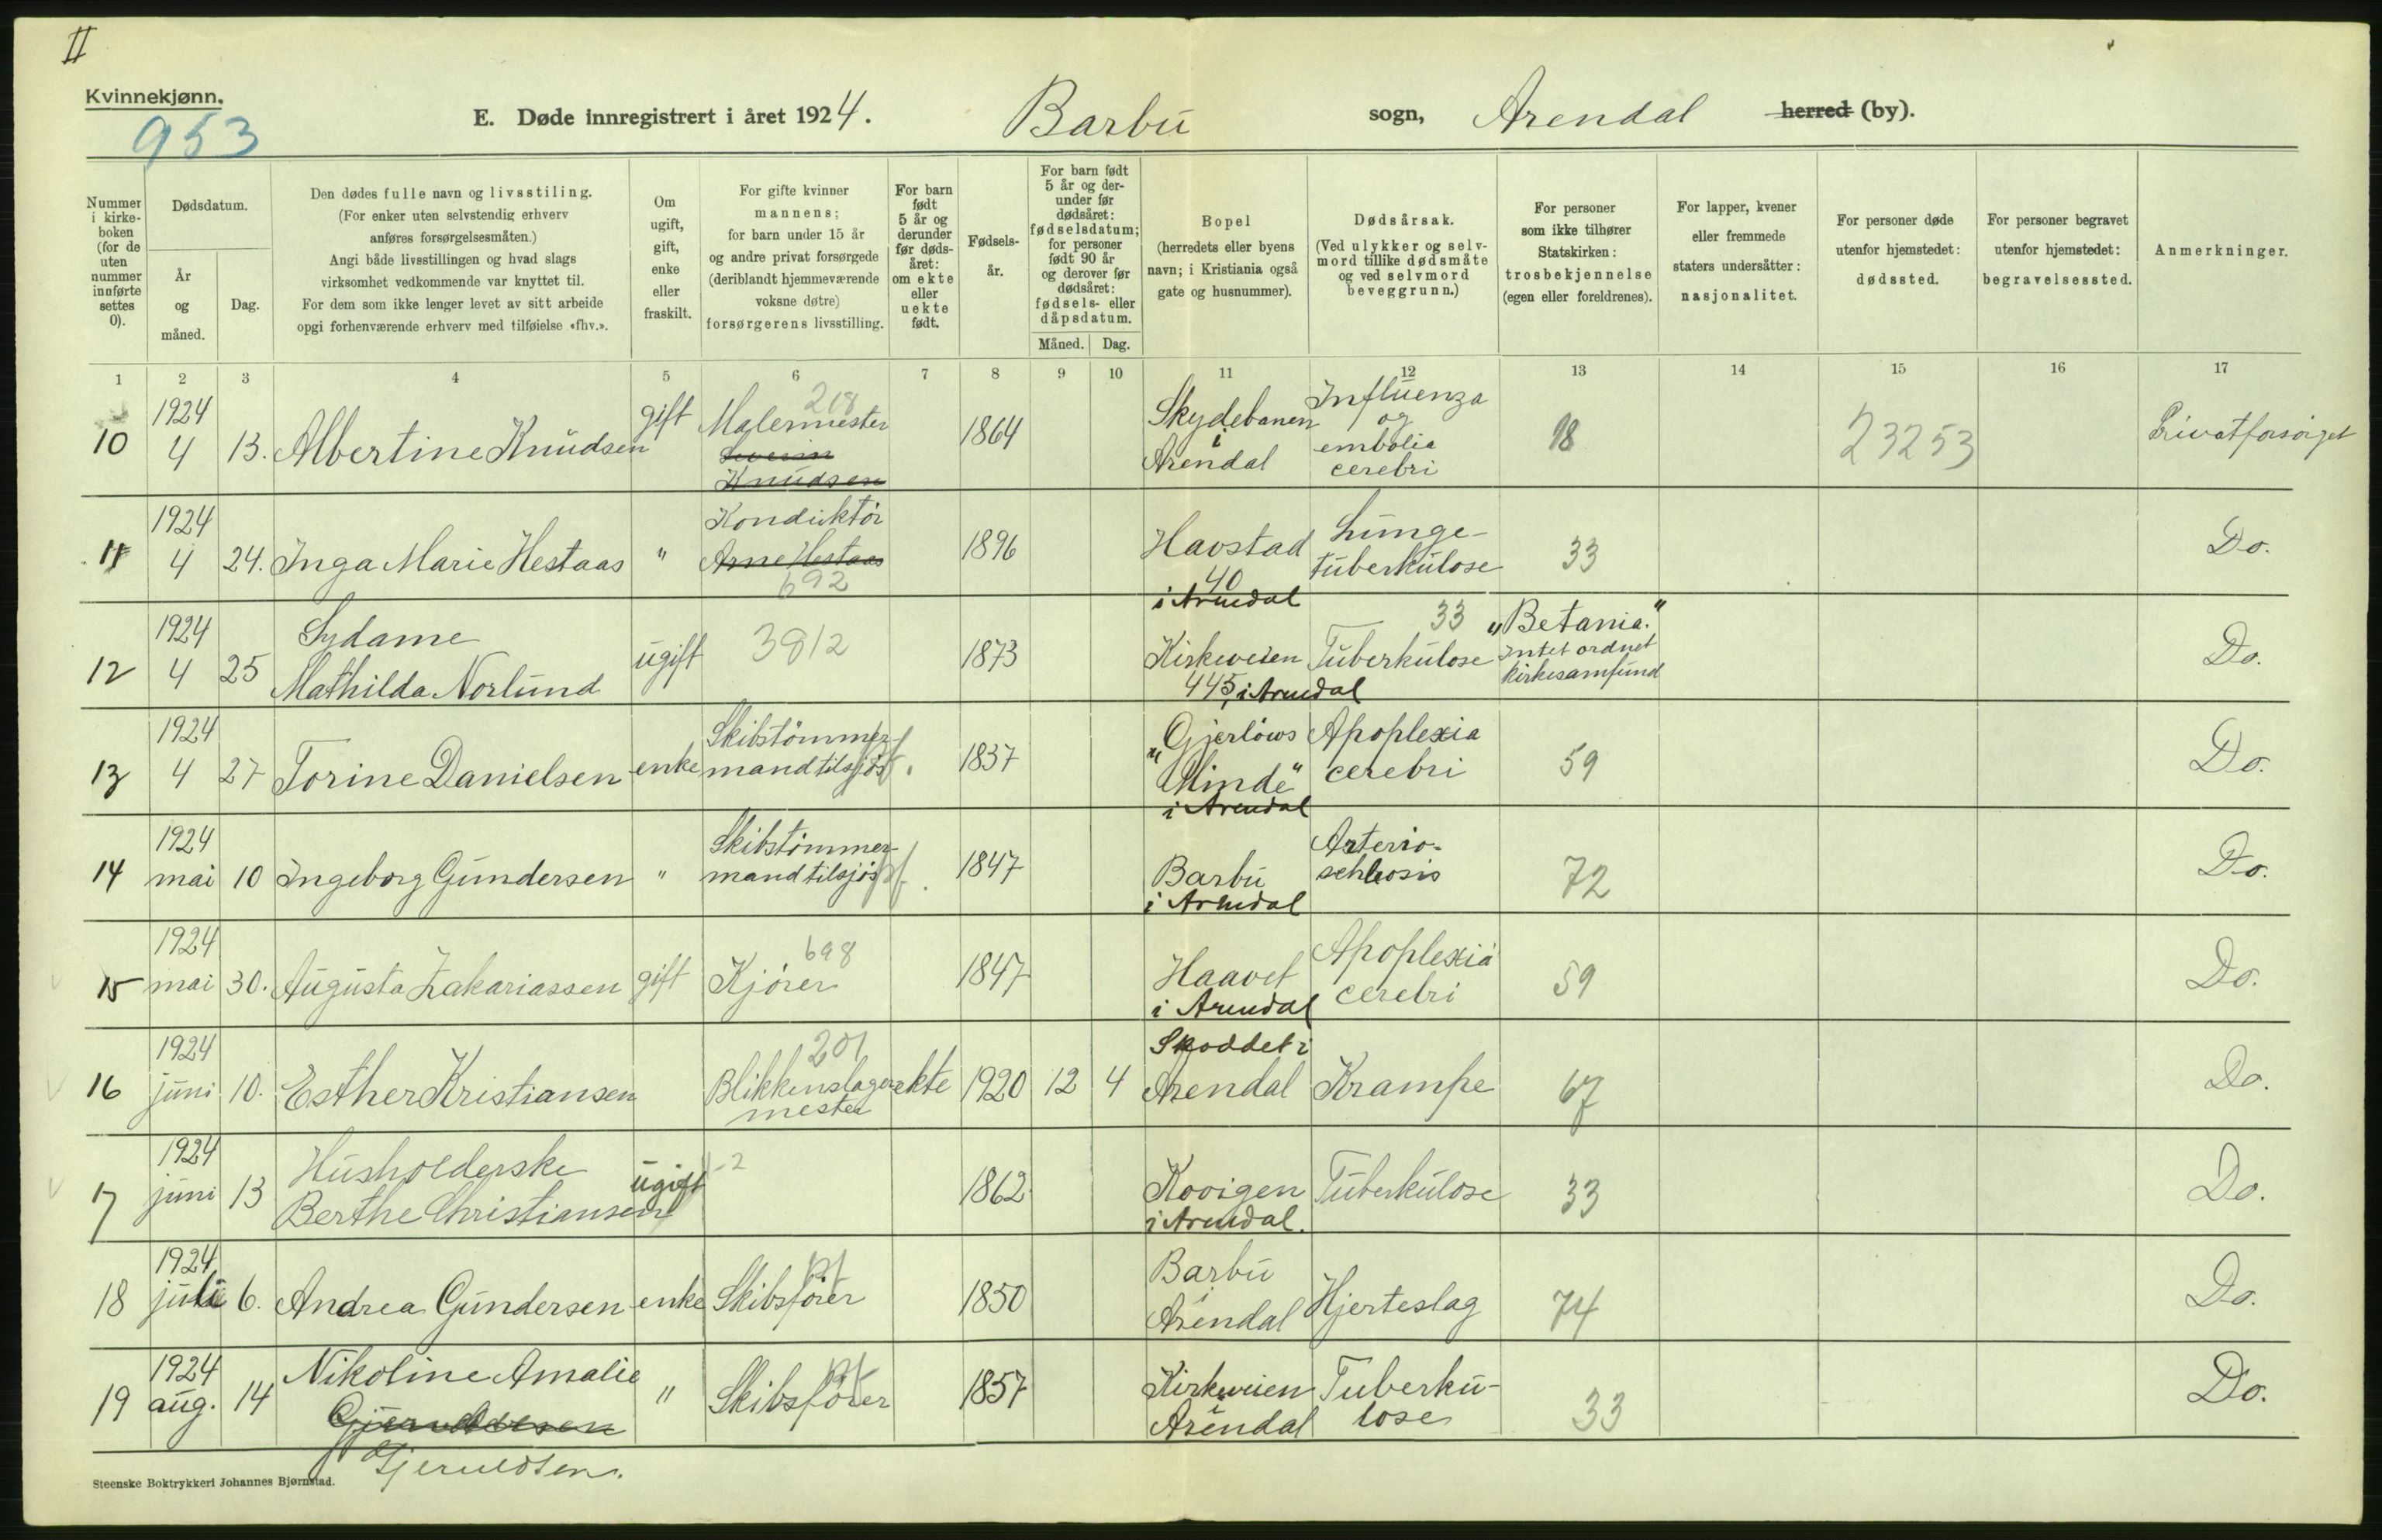 II
Kvinnekjønn.
953
E. Døde innregistrert i året 1924.
Barbu
sogn,
Arendal
herred (by).
Nummer i kirke-boken (for de uten nummer innførte settes 0).
Dødsdatum.
År og måned.
Dag.
Den dødes fulle navn og livsstiling.
(For enker uten selvstendig erhverv
anføres forsørgelsesmåten.)
Angi både livsstillingen og hvad slags
virksomhet vedkommende var knyttet til.
For dem som ikke lenger levet av sitt arbeide
opgi forhenværende erhverv med tilføielse «fhv.».
Om ugift, gift, enke eller fraskilt.
For gifte kvinner
mannens;
for barn under 15 år
og andre privat forsørgede
(deriblandt hjemmeværende
voksne døtre)
forsørgerens livsstilling.
For barn født 5 år og derunder før døds-året: om ekte eller uekte født.
Fødsels-år.
For barn født
5 år og der-
under før
dødsåret:
fødselsdatum;
for personer
født 90 år
og derover før
dødsåret:
fødsels- eller
dåpsdatum.
Måned. Dag.
Bopel
(herredets eller byens
navn; i Kristiania også
gate og husnummer).
Dødsårsak.
(Ved ulykker og selv-
mord tillike dødsmåte
og ved selvmord
beveggrunn.)
For personer
som ikke tilhører
Statskirken:
trosbekjennelse
(egen eller foreldrenes).
For lapper, kvener
eller fremmede
staters undersåtter:
nasjonalitet.
For personer døde
utenfor hjemstedet:
dødssted.
For personer begravet
utenfor hjemstedet:
begravelsessted.
Anmerkninger.
1 2 3 4 5 6 7 8 9 10 11 12 13 14 15 16 17
10 1924 4 13. Albertine Knudsen gift 218 Malermester Severin Knudsen 1864 Skydebanen i Arendal Influenza og embolia cerebri 18 23253 Privatforsørget
11 1924 4 24. Inga Marie Hestaas " Konduktør Arne Hestaas 692 1896 Havstad 40 i Arendal Lunge-tuberkulose 33 Do.
12 1924 4 25 Sydame Mathilda Norlund ugift 3812 1873 Kirkeveien 445, i Arendal Tuberkulose 33 "Betania." Intet ordnet kirkesamfund Do.
13 1924 4 27 Torine Danielsen enke Skibstømmermand tilsjøs pf. 1837 "Gjerløws Minde" i Arendal Apoplexia cerebri 59 Do.
14 1924 mai 10 Ingeborg Gundersen " Skibstømmer-mand tilsjøs pf. 1847 Barbu i Arendal Arterio-schlerosis 72 Do.
15 1924 mai 30. Augusta Zakariassen gift 698 Kjører 1847 Haavet i Arendal Apoplexia cerebri 59 Do.
16 1924 juni 10. Esther Kristiansen 201 Blikkenslager mester ekte 1920 12 4 Skoddet i Arendal Krampe 67 Do.
17 1924 juni 13 Husholderske Berthe Christiansen ugift 1-2 1862 Kovigen i Arendal. Tuberkulose 33 Do.
18 1924 juli 6. Andrea Gundersen enke pf Skibsfører 1850 Barbu i Arendal Hjerteslag 74 Do.
19 1924 aug. 14 Nikoline Amalie Gjeruldsen " pf Skibsfører 1857 Kirkeveien i Arendal Tuberku-lose 33 Do.
Gjeruldsen.
Steenske Boktrykkeri Johannes Bjørnstad.